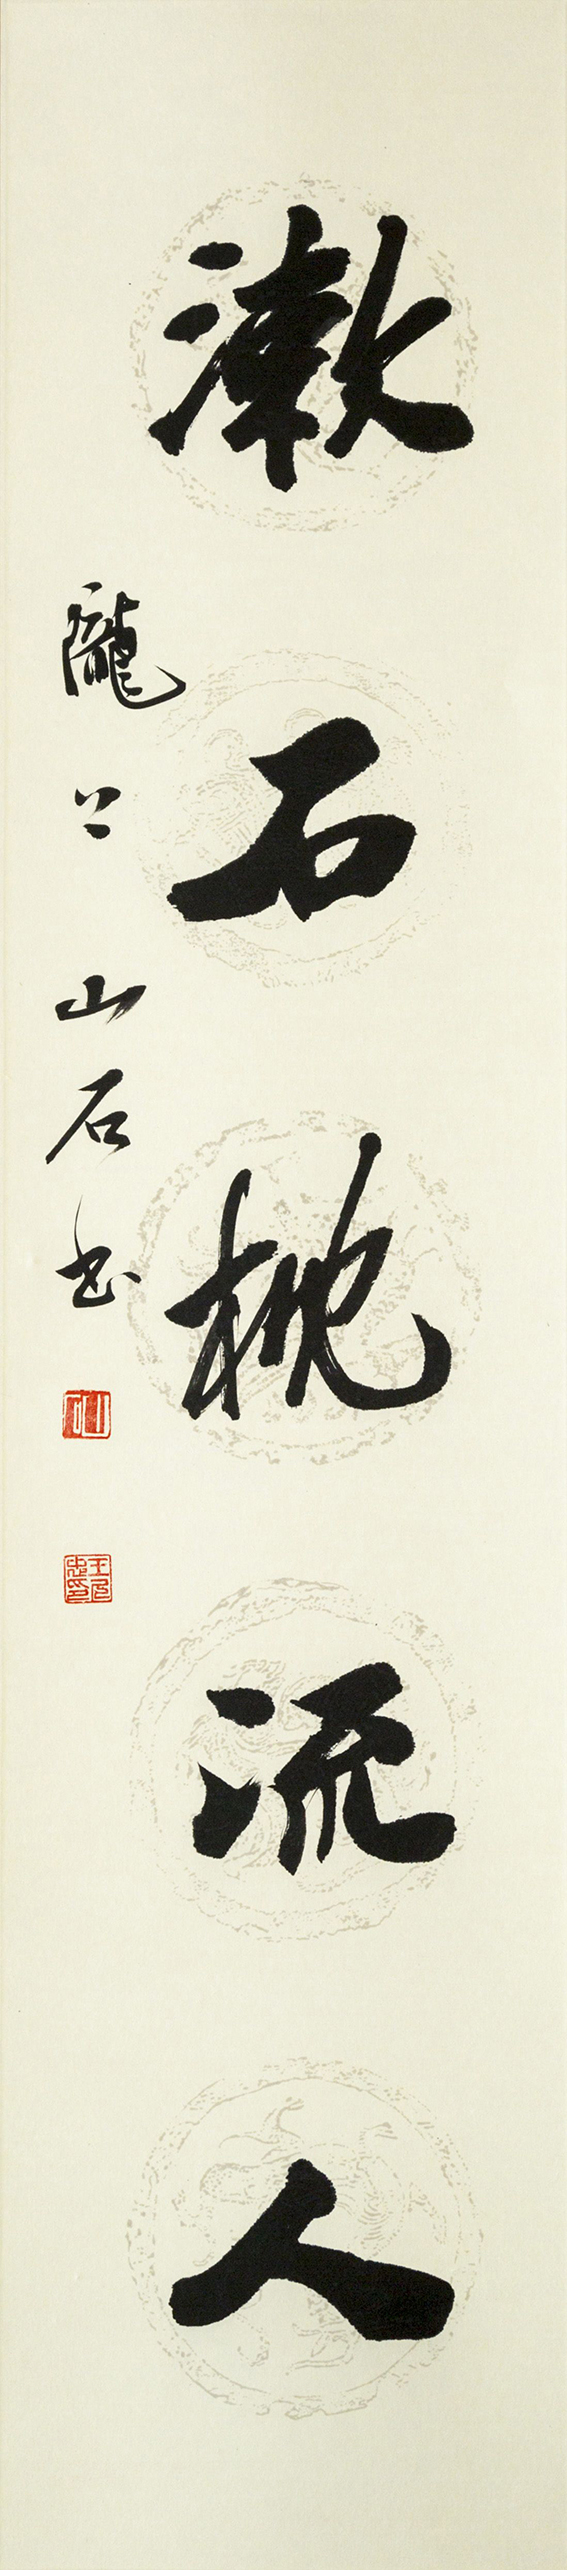 漱石枕流人
隴上山石书